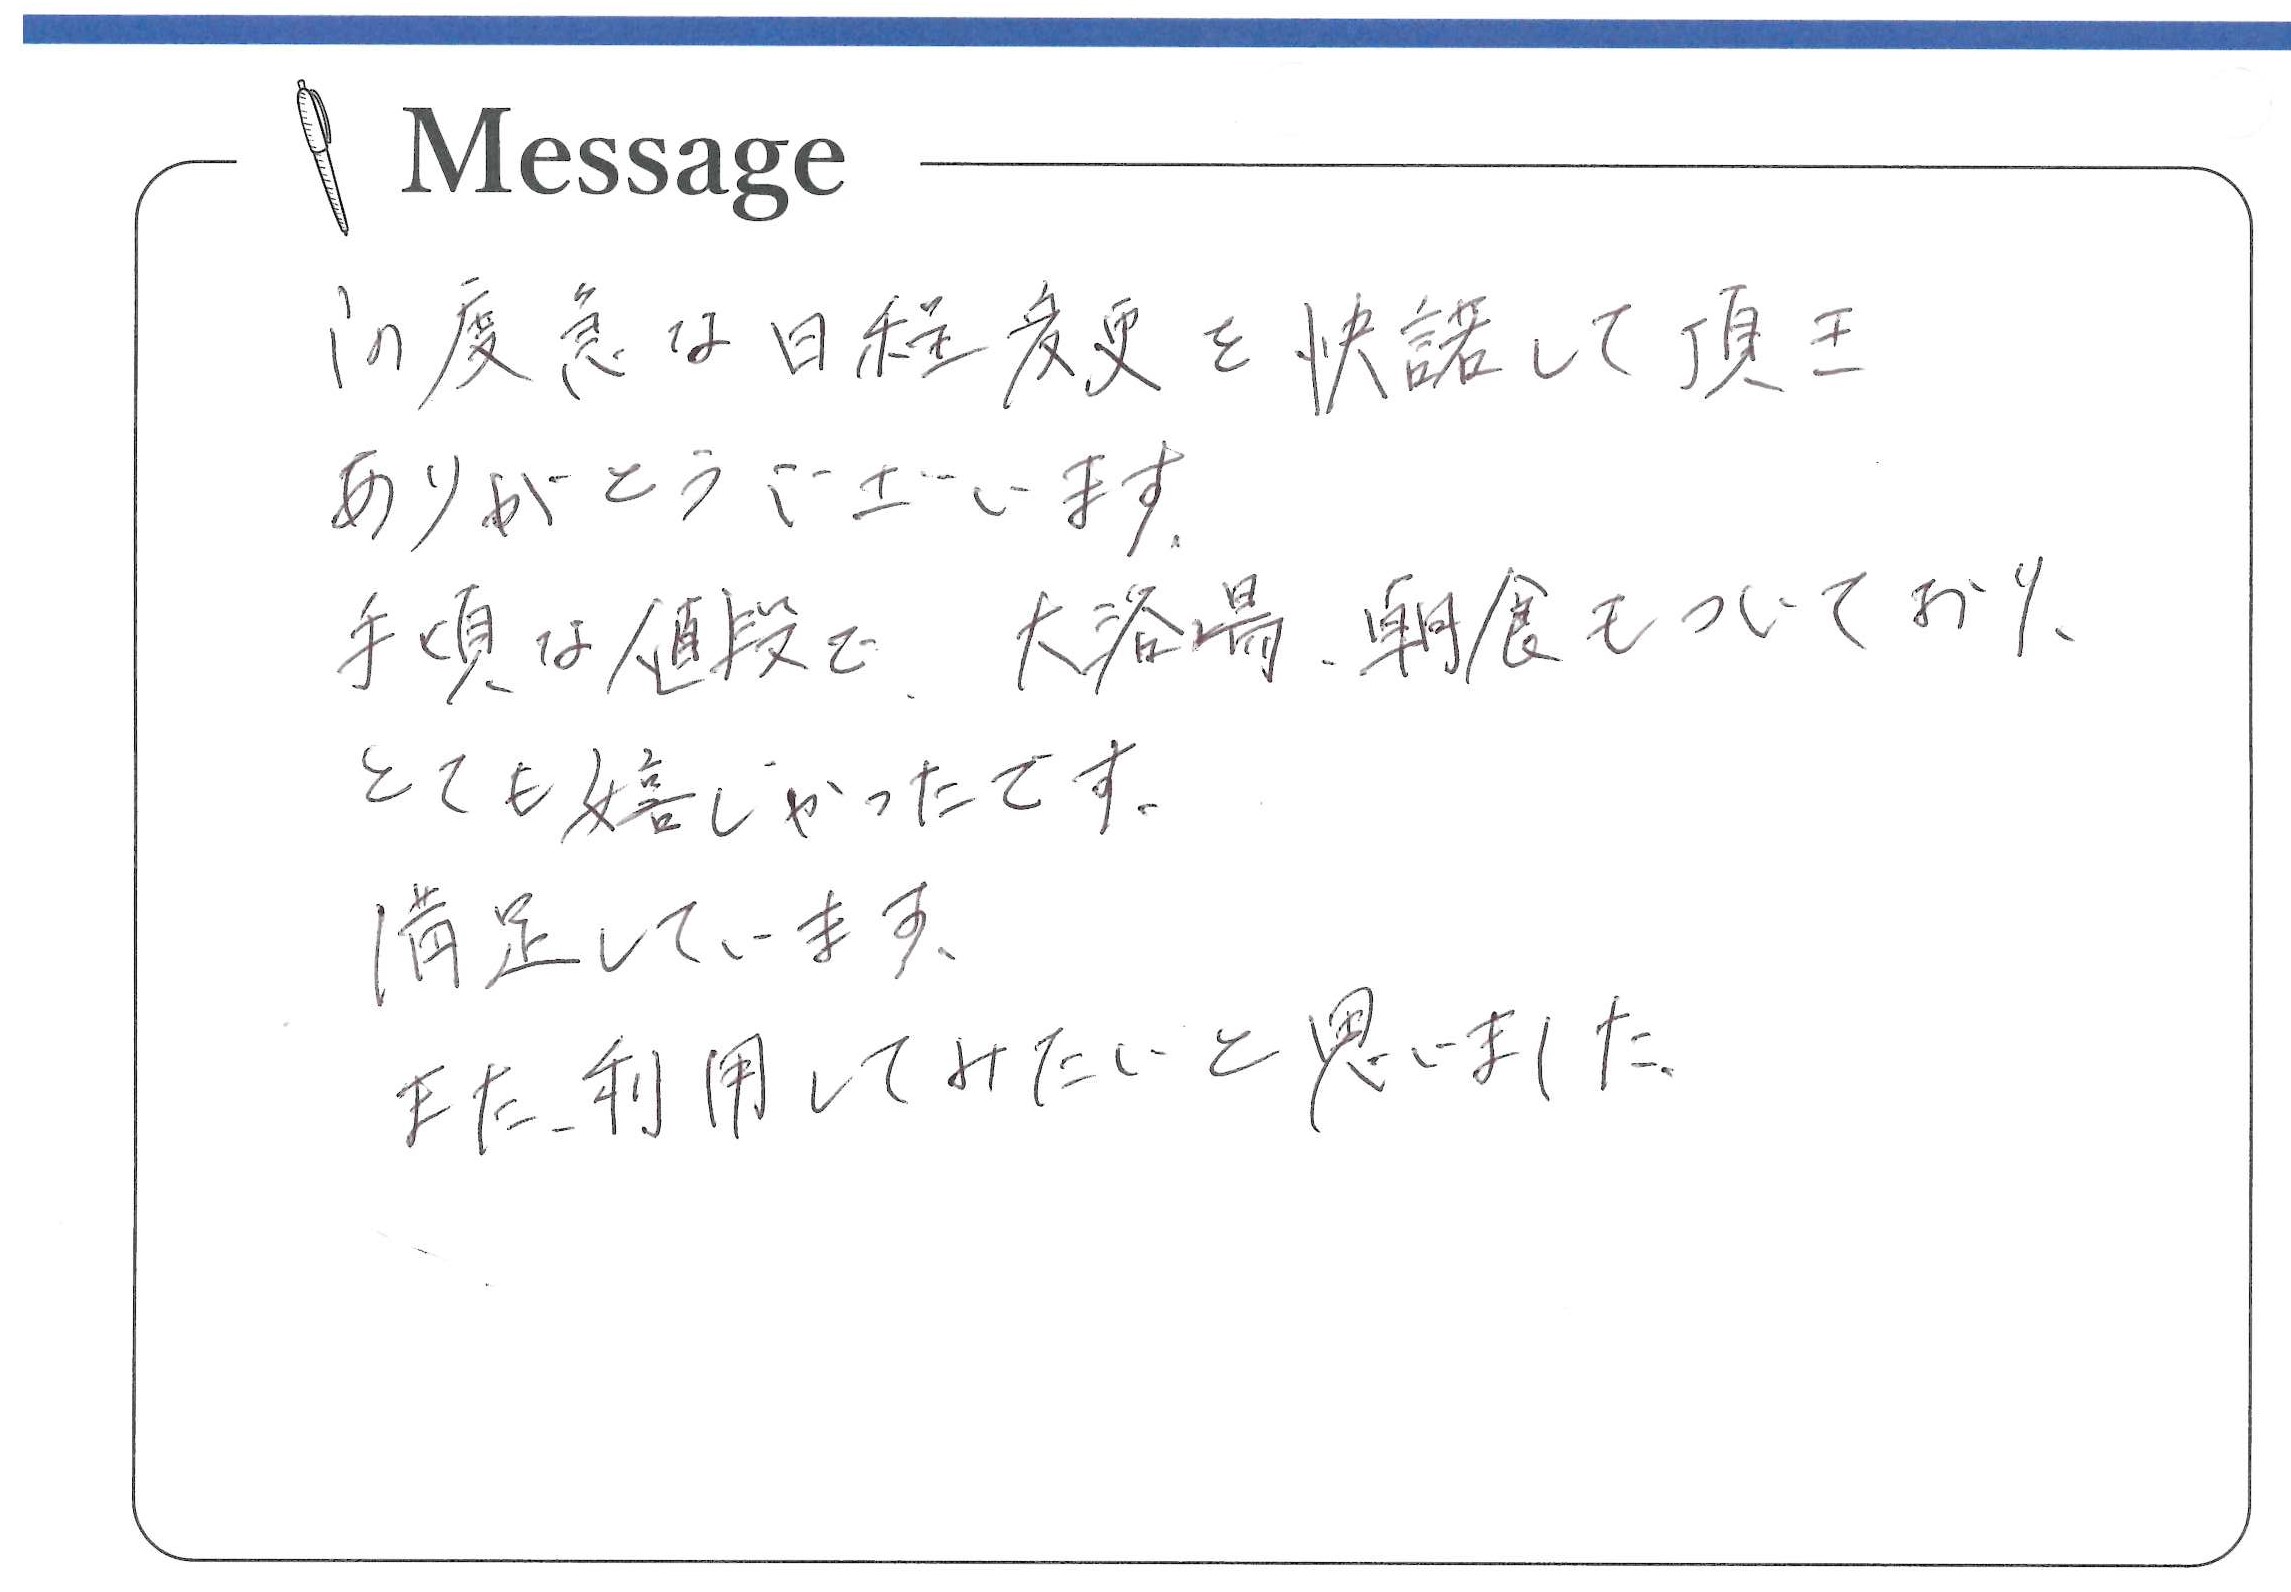 Message
この度急な日程変更を快諾して頂き
ありがとうございます。
手頃な値段で、大浴場、朝食もついており、
とても嬉しかったです。
満足しています。
また、利用してみたいと思いました。